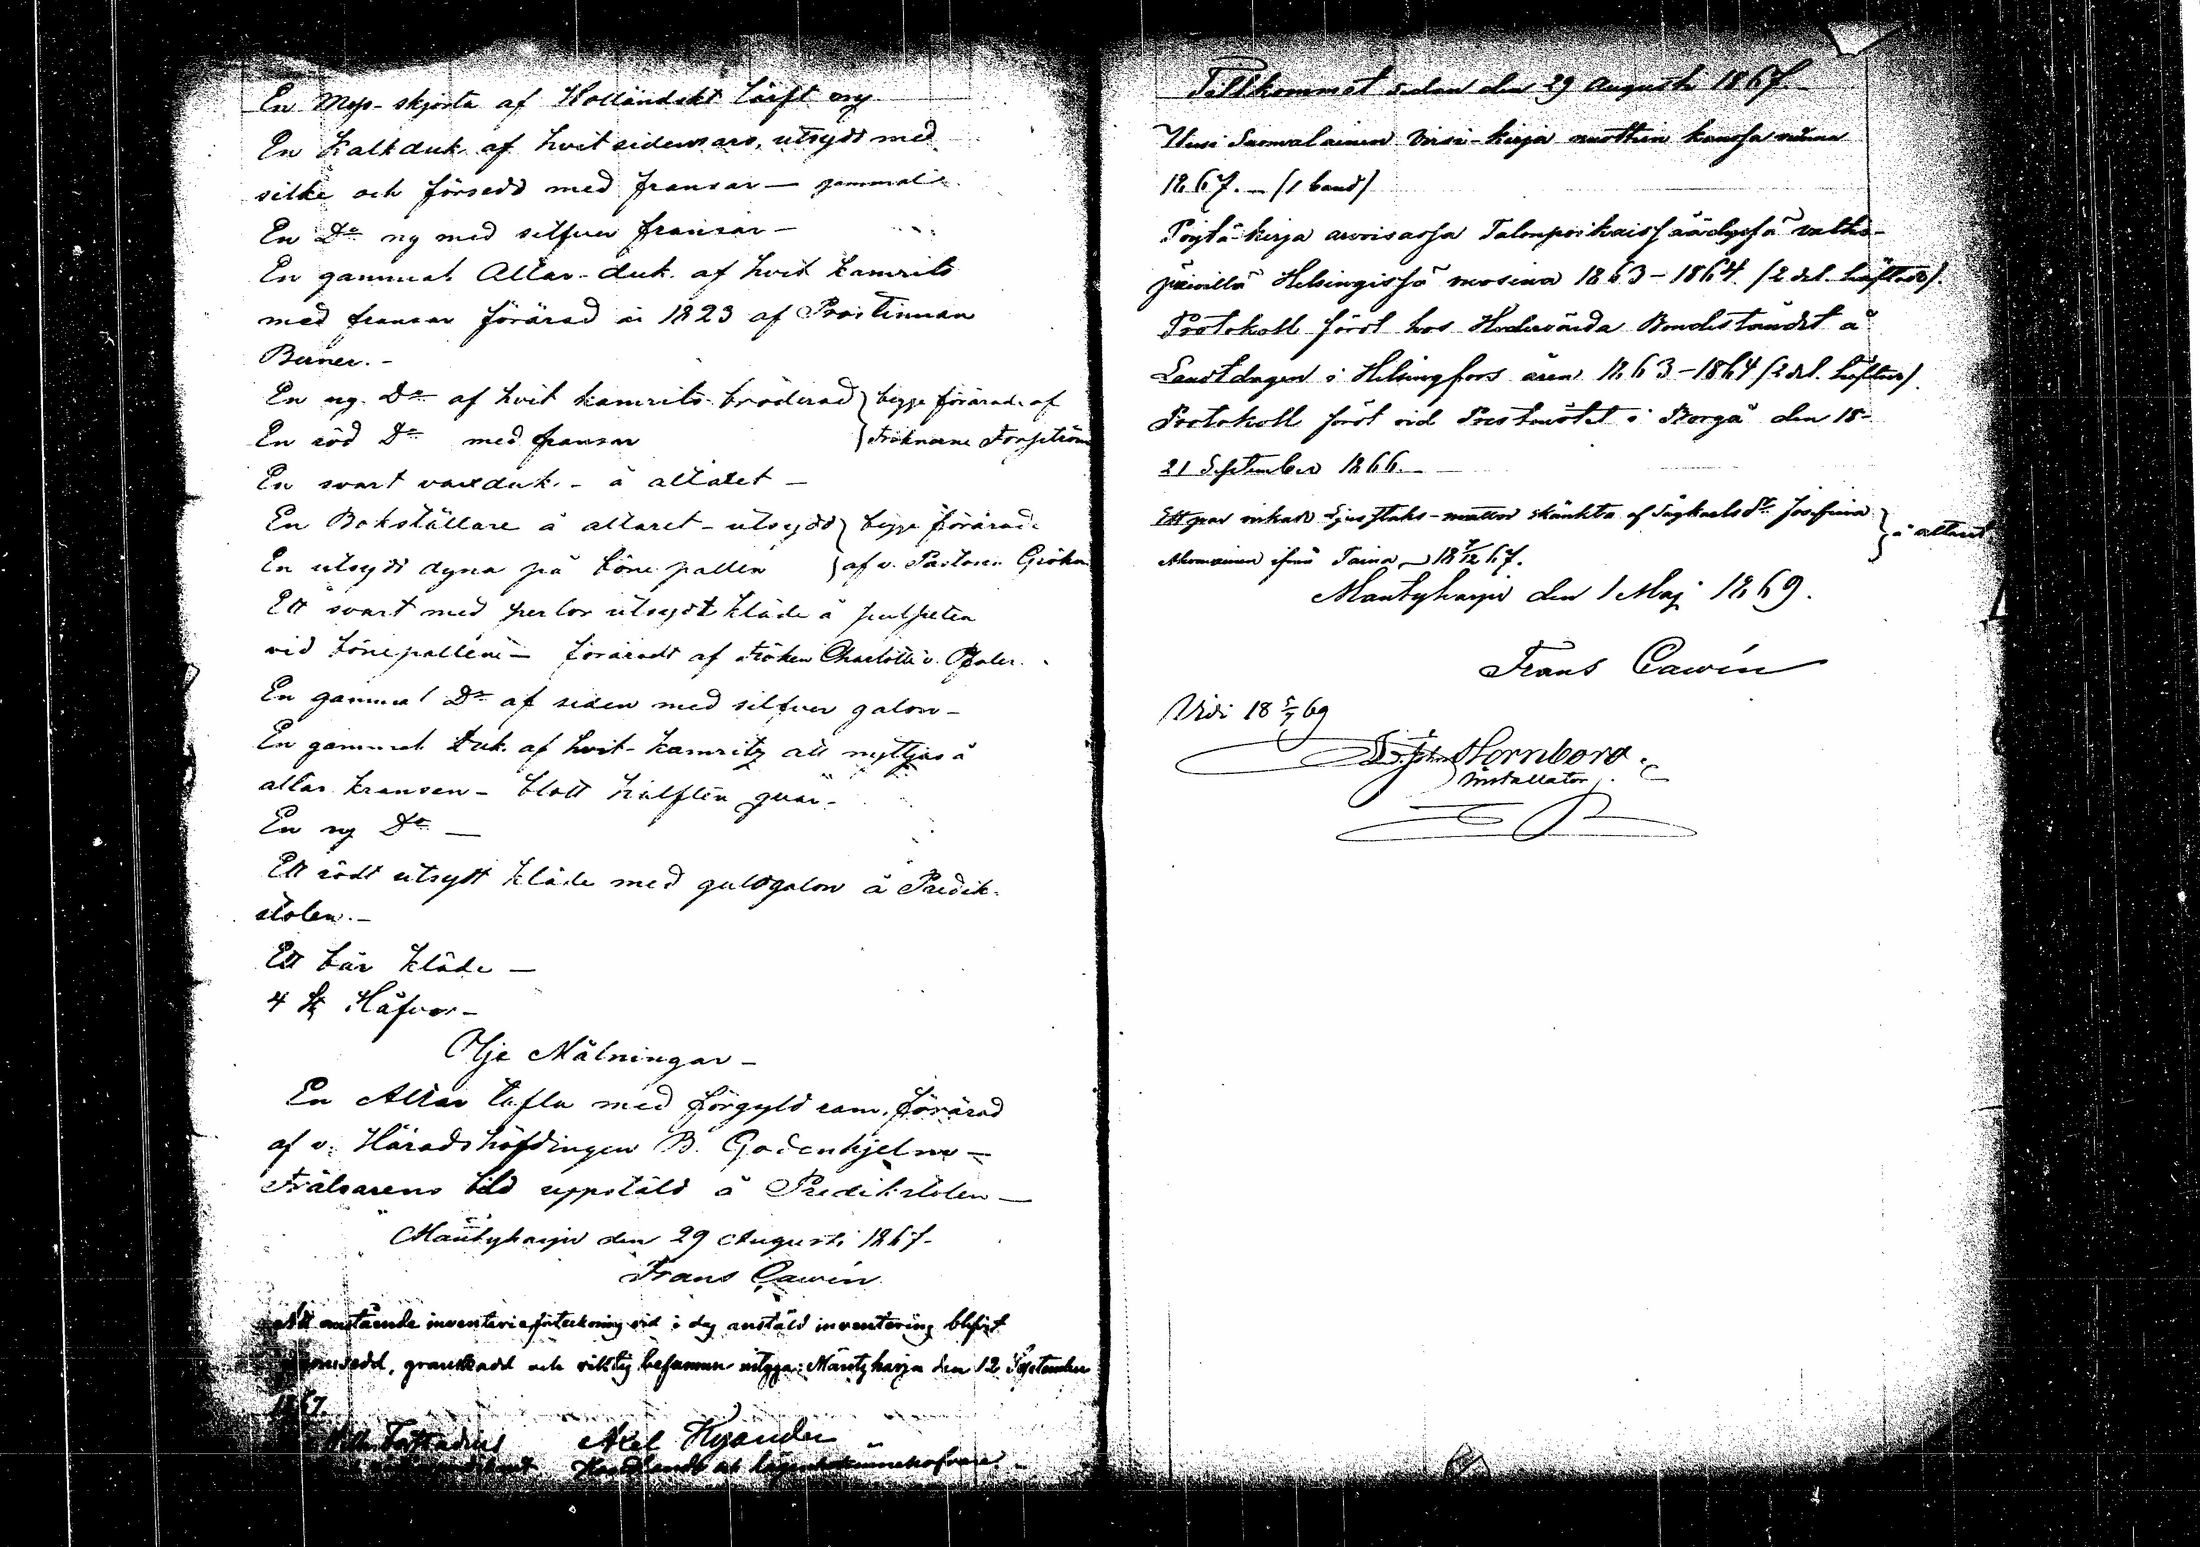 En Mess-skjorta af Holländskt lärft ny
En Kalkduk af hvit sidensars, utsydd med
silke och försedd med fransar — gammal
En Do ny med silfver fransar —
En gammal Altar-duk af hvit kamrits
med fransar förärad år 1823 af Prostinnan
Berner. —
En ny Do af hvit kamrits broderad } begge förärade af
En röd Do med fransar } Fröknarne Forsström
En svart vaxduk — å altaret —
En Bokställare å altaret — utsydd } begge förärade
En utsydd dyna på bönepallen } af v. Pastorn Gröhn
Ett svart med perlor utsydt kläde å pulpeten
vid bönepallen — föräradt af Fröken Charlotte v. Pfaler.
En gammal Do af siden med silfver galon —
En gammal Duk af hvit kamritz att nyttjas å
altar kransen — blott hälften qvar —
En ny Do —
Ett rödt utsytt kläde med guldgalon å Predik-
stolen. —
Ett bår kläde —
4 st Håfvor —
Olje Målningar —
En Altar tafla med förgyld ram, förärad
af v. Häradshöfdingen B. Godenhjelm —
Frälsarens bild uppstäld å Predikstolen —
Mäntyharju den 29 Augusti 1867.
Frans Cawén
Att omstående inventarieförteckning vid i dag anstäld inventering blifvit
genomsedd, granskadd och riktig befunnen intyga: Mäntyharju den 12 September
1867.
Axel Hyander
Tillkommet sedan den 29 Augusti 1867. —
Uusi Suomalainen Virsi-kirja nuottein kanssa vuonna
1867. — (1 band)
Pöytä-kirja arvoisassa Talonpoikaissäädyssä valtio-
päivillä Helsingissä vuosina 1863–1864 (2 del. häftad).
Protokoll fördt hos Hedervärda Bondeståndet å
Landtdagen i Helsingfors åren 1863–1864 (2 del. häftad).
Protokoll fördt vid Prestmötet i Borgå den 18–
21 September 1866. —
Ett par virkade Ljusstaks-mattor skänkta af Josefina } å altaret
ifrån Taina — 18 7/12 67.
Mäntyharju den 1 Maj 1869.
Frans Cawén
Vidi 18 5/7 69
Hornborg.
Installator.